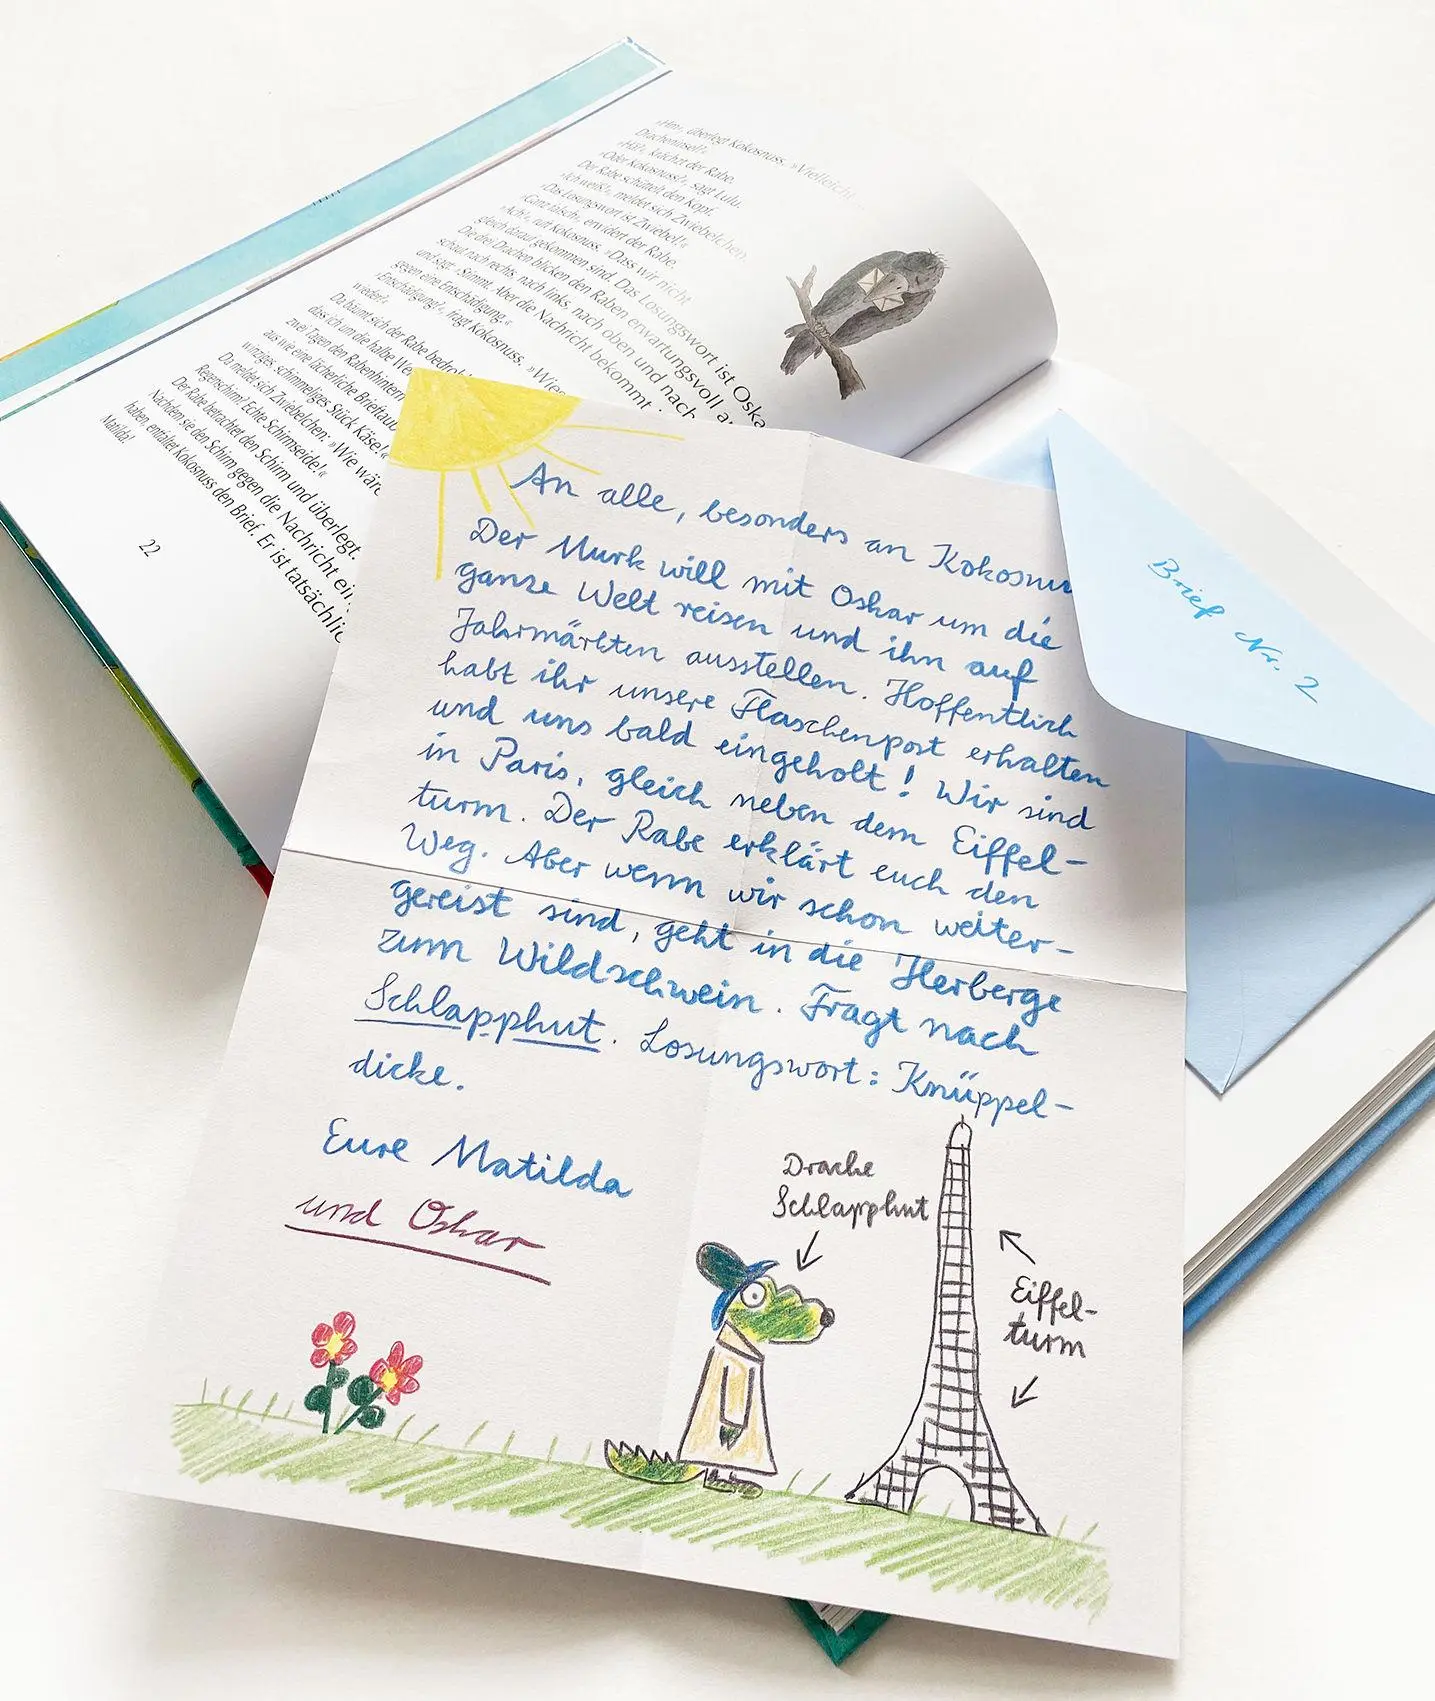 »Hm«, überlegt Kokosnuss. »Vielleicht
Dracheninsel?«
»Hä?«, krächzt der Rabe.
»Oder Kokosnuss?«, sagt Lulu.
Der Rabe schüttelt den Kopf.
»Ich weiß!«, meldet sich Zwiebelchen.
»Das Losungswort ist Zwiebel!«
»Ganz falsch«, erwidert der Rabe.
»Ach!«, ruft Kokosnuss. »Dass wir nicht
gleich darauf gekommen sind. Das Losungswort ist Oska
Die drei Drachen blicken den Raben erwartungsvoll a
schaut nach rechts, nach links, nach oben und nach
und sagt: »Stimmt. Aber die Nachricht bekommt i
gegen eine Entschädigung.«
»Entschädigung?«, fragt Kokosnuss. »Wies
weder?«
Da bäumt sich der Rabe bedroh
dass ich um die halbe We
zwei Tagen den Rabenhintern
aus wie eine lächerliche Brieftaub
winziges schimmeliges Stück Käse!«
Da meldet sich Zwiebelchen. »Wie wäre
Regenschirm? Echte Schirmseide!«
Der Rabe betrachtet den Schirm und überlegt.
Nachdem sie den Schirm gegen die Nachricht ein
haben, entfaltet Kokosnuss den Brief. Er ist tatsächlic
Matilda!
22
Brief Nr. 2
An alle, besonders an Kokosnu
Der Murk will mit Oskar um die
ganze Welt reisen und ihn auf
Jahrmärkten ausstellen. Hoffentlich
habt ihr unsere Flaschenpost erhalten
und uns bald eingeholt! Wir sind
in Paris, gleich neben dem Eiffel-
turm. Der Rabe erklärt euch den
Weg. Aber wenn wir schon weiter-
gereist sind, geht in die Herberge
zum Wildschwein. Fragt nach
Schlapphut. Losungswort: Knüppel-
dicke.
Eure Matilda
und Oskar
Drache
Schlapphut
Eiffel-
turm